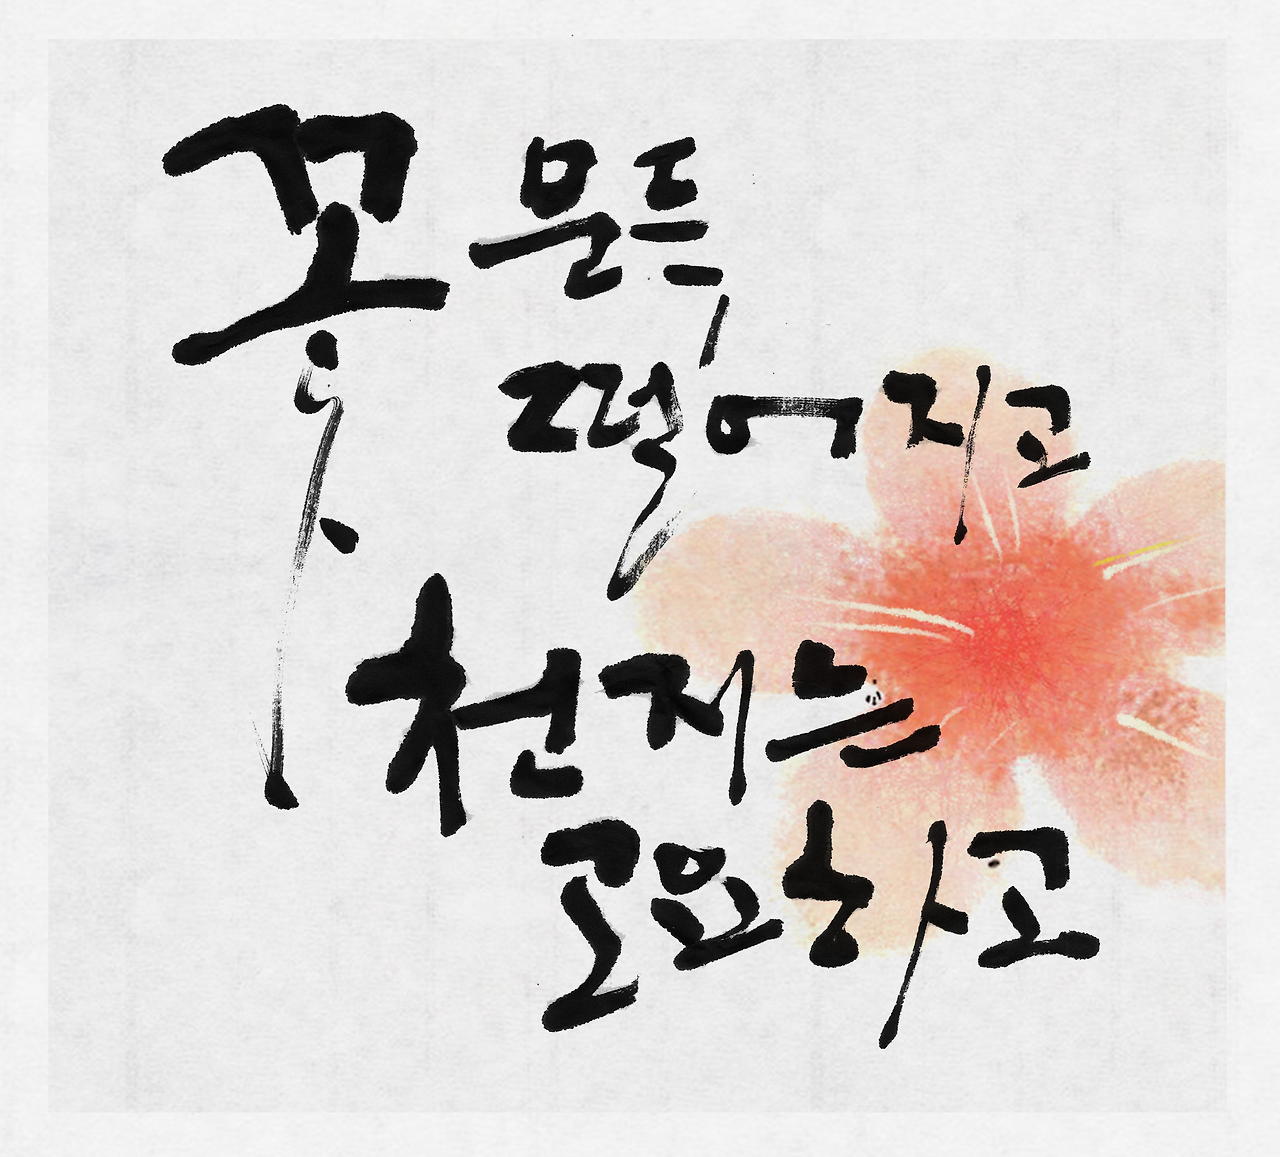 꽃 문득
떨어지고
천지는
고요하고